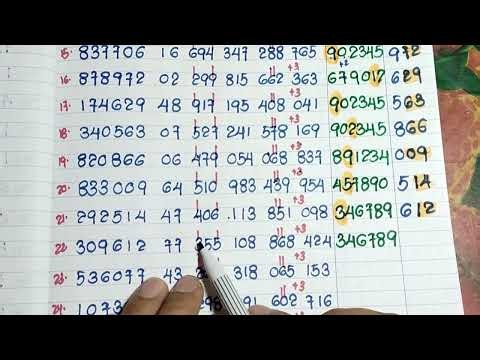 15. 837706 16 694 347 288 765 902345 972
+3 +2
16. 878972 02 299 815 662 363 679017 629
+3
17. 174629 48 917 195 408 041 902345 563
+3
18. 340563 07 527 241 578 169 902345 866
+3
19. 820866 06 479 054 068 837 891234 009
+3
20. 833009 64 510 983 439 954 457890 514
+3
21. 292514 47 406 113 851 098 346789 612
+3
22. 309612 77 355 108 868 424 346789
+3
23. 536077 43 318 065 153
24. 1073 91 602 716